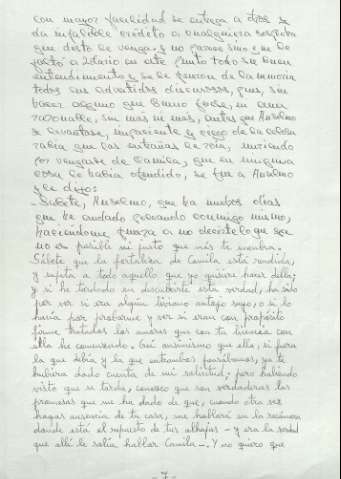 con mayor facilidad se entrega a otros y
da infalible crédito a cualquiera sospecha
que desto le venga. Y no parece sino que le
faltó a Lotario en este punto todo su buen
entendimiento y se le fueron de la memoria
todos sus advertidos discursos, pues, sin
hacer alguno que bueno fuese, ni aun
razonable, sin más ni más, antes que Anselmo
se levantase, impaciente y ciego de la celosa
rabia que las entrañas le roía, muriendo
por vengarse de Camila, que en ninguna
cosa le había ofendido, se fue a Anselmo
y le dijo:
- Sábete, Anselmo, que ha muchos días
que he andado peleando conmigo mismo,
haciéndome fuerza a no decirte lo que ya
no es posible ni justo que más te encubra.
Sábete que la fortaleza de Camila está rendida,
y sujeta a todo aquello que yo quisiere hacer della;
y si he tardado en descubrirte esta verdad, ha sido
por ver si era algún liviano antojo suyo, o si lo
hacía por probarme y ver si eran con propósito
firme tratados los amores que con tu licencia con
ella he comenzado. Creí ansimismo que ella, si fuera
la que debía y la que entrambos pensábamos, ya te
hubiera dado cuenta de mi solicitud; pero habiendo
visto que se tarda, conozco que son verdaderas las
promesas que me ha dado de que, cuando otra vez
hagas ausencia de tu casa, me hablará en la recámara
donde está el repuesto de tus alhajas - y era la verdad
que allí le solía hablar Camila -. Y no quiero que
- 7 -